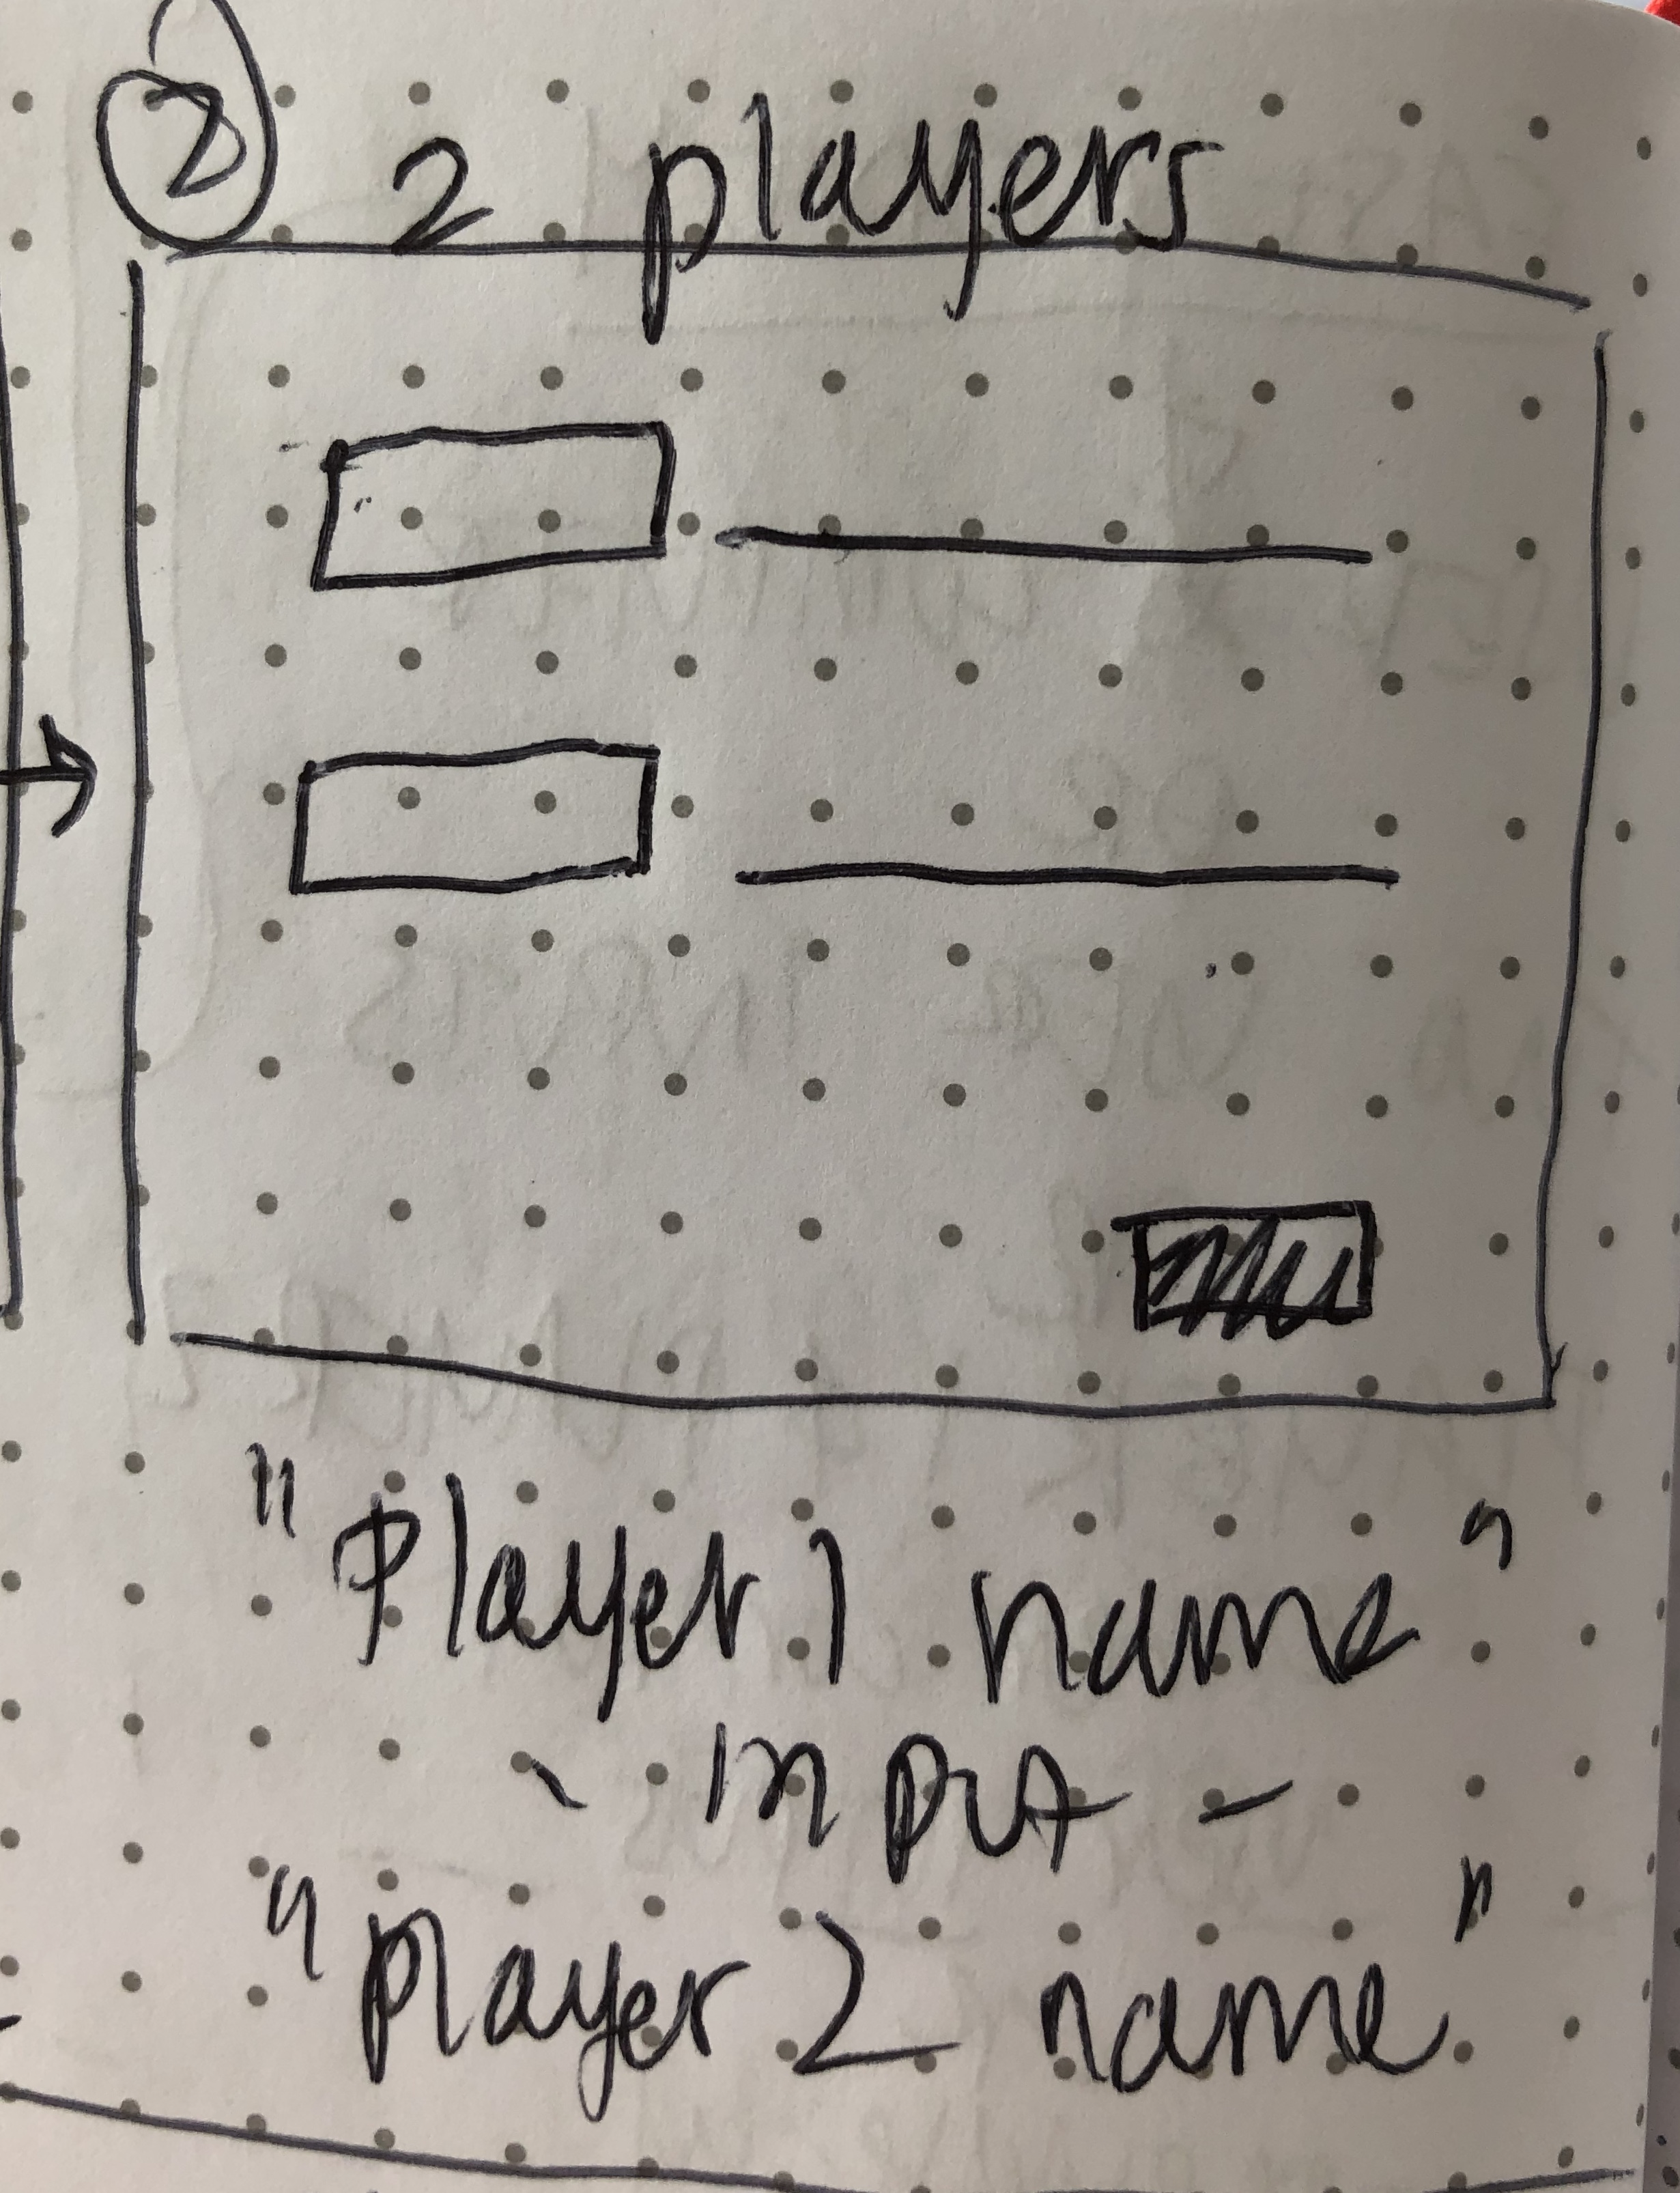 2 2 players
"Player 1 name"
- input -
"player 2 name"